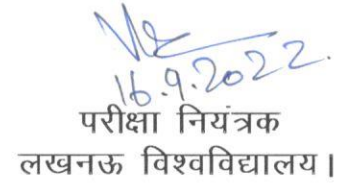 16.9.2022.
परीक्षा नियंत्रक
लखनऊ विश्वविद्यालय।